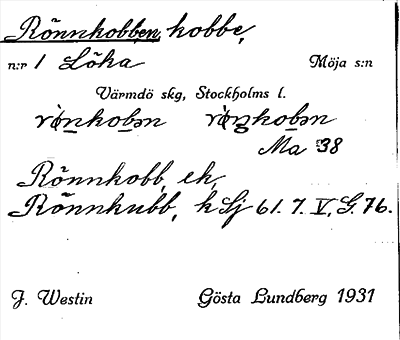 Rönnkobben, kobbe,
n:r 1 Löka Möja s:n
Värmdö skg, Stockholms l.
Ma 38
Rönnkobb, ek,
Rönnkubb, k Sj 61. 7. V, G. 76.
J. Westin Gösta Lundberg 1931